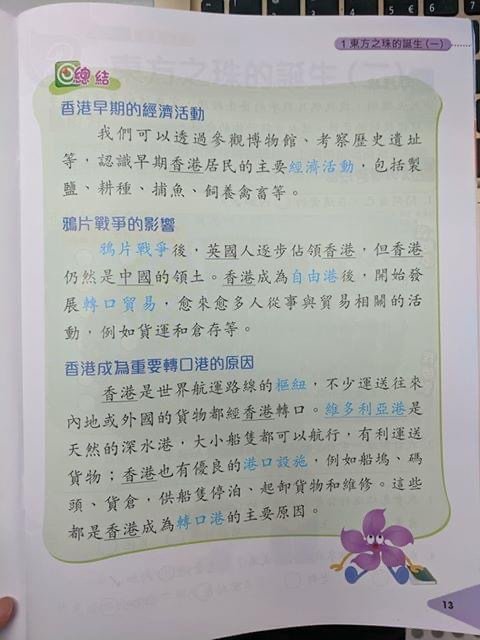 1 東方之珠的誕生(一)
總結
香港早期的經濟活動
我們可以透過參觀博物館、考察歷史遺址
等，認識早期香港居民的主要經濟活動，包括製
鹽、耕種、捕魚、飼養禽畜等。
鴉片戰爭的影響
鴉片戰爭後，英國人逐步佔領香港，但香港
仍然是中國的領土。香港成為自由港後，開始發
展轉口貿易，愈來愈多人從事與貿易相關的活
動，例如貨運和倉存等。
香港成為重要轉口港的原因
香港是世界航運路線的樞紐，不少運送往來
內地或外國的貨物都經香港轉口。維多利亞港是
天然的深水港，大小船隻都可以航行，有利運送
貨物；香港也有優良的港口設施，例如船塢、碼
頭、貨倉，供船隻停泊、起卸貨物和維修。這些
都是香港成為轉口港的主要原因。
13